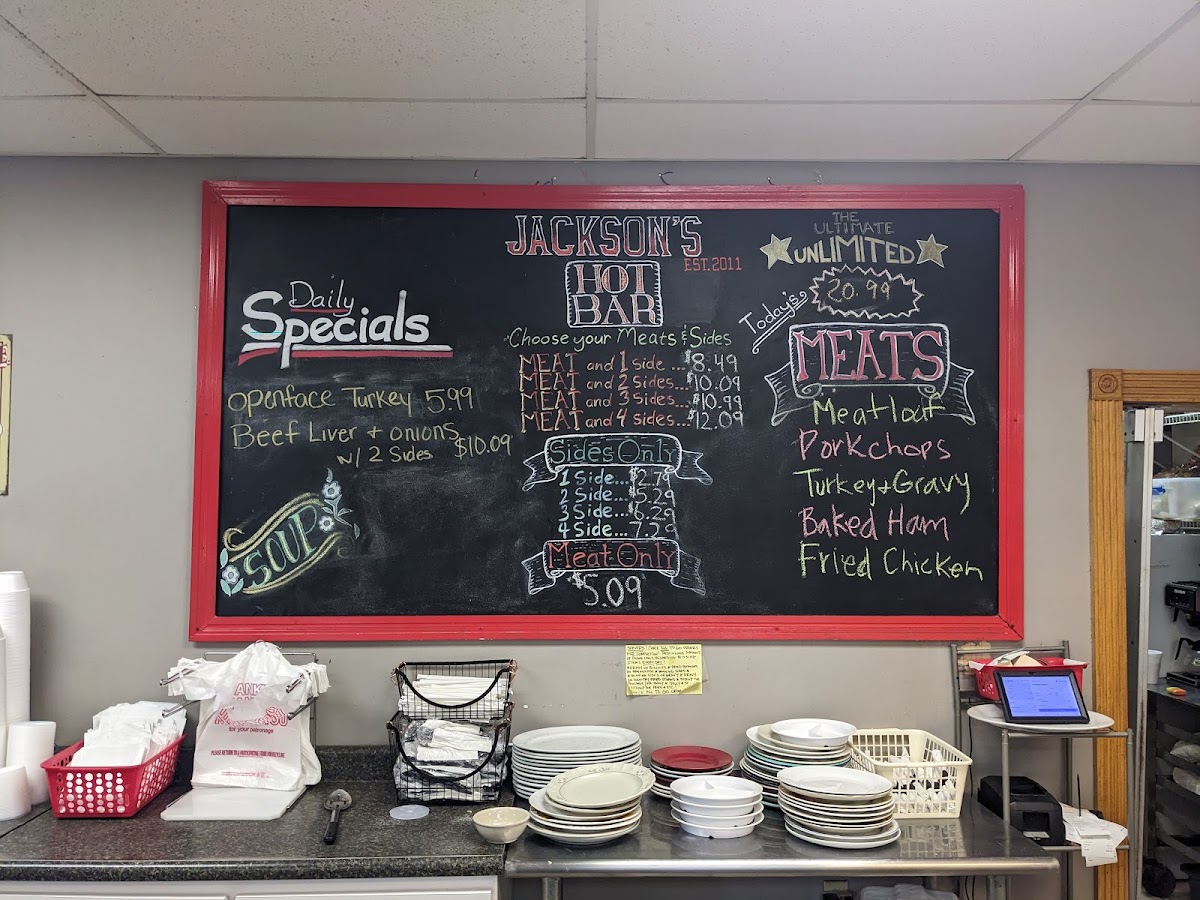 Daily
Specials
Openface Turkey 5.99
Beef Liver + onions
w/ 2 Sides $10.09
SOUP
JACKSON'S
EST. 2011
HOT
BAR
Choose your Meats & Sides
MEAT and 1 side ... $8.49
MEAT and 2 Sides... $10.09
MEAT and 3 Sides... $10.99
MEAT and 4 sides... $12.09
Sides Only
1 Side... $2.79
2 Side... $5.29
3 Side... $6.29
4 Side... 7.29
Meat Only
$5.09
THE
ULTIMATE
UNLIMITED
20.99
Today's
MEATS
Meatloaf
Porkchops
Turkey + Gravy
Baked Ham
Fried Chicken
for your patronage